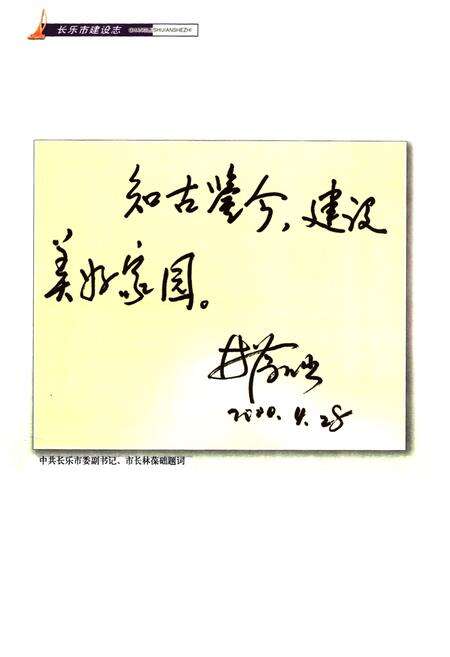 长乐市建设志
CHANGLESHIJIANSHEZHI
知古鉴今，建设
美好家园。
林葆础
2010.4.28
中共长乐市委副书记、市长林葆础题词